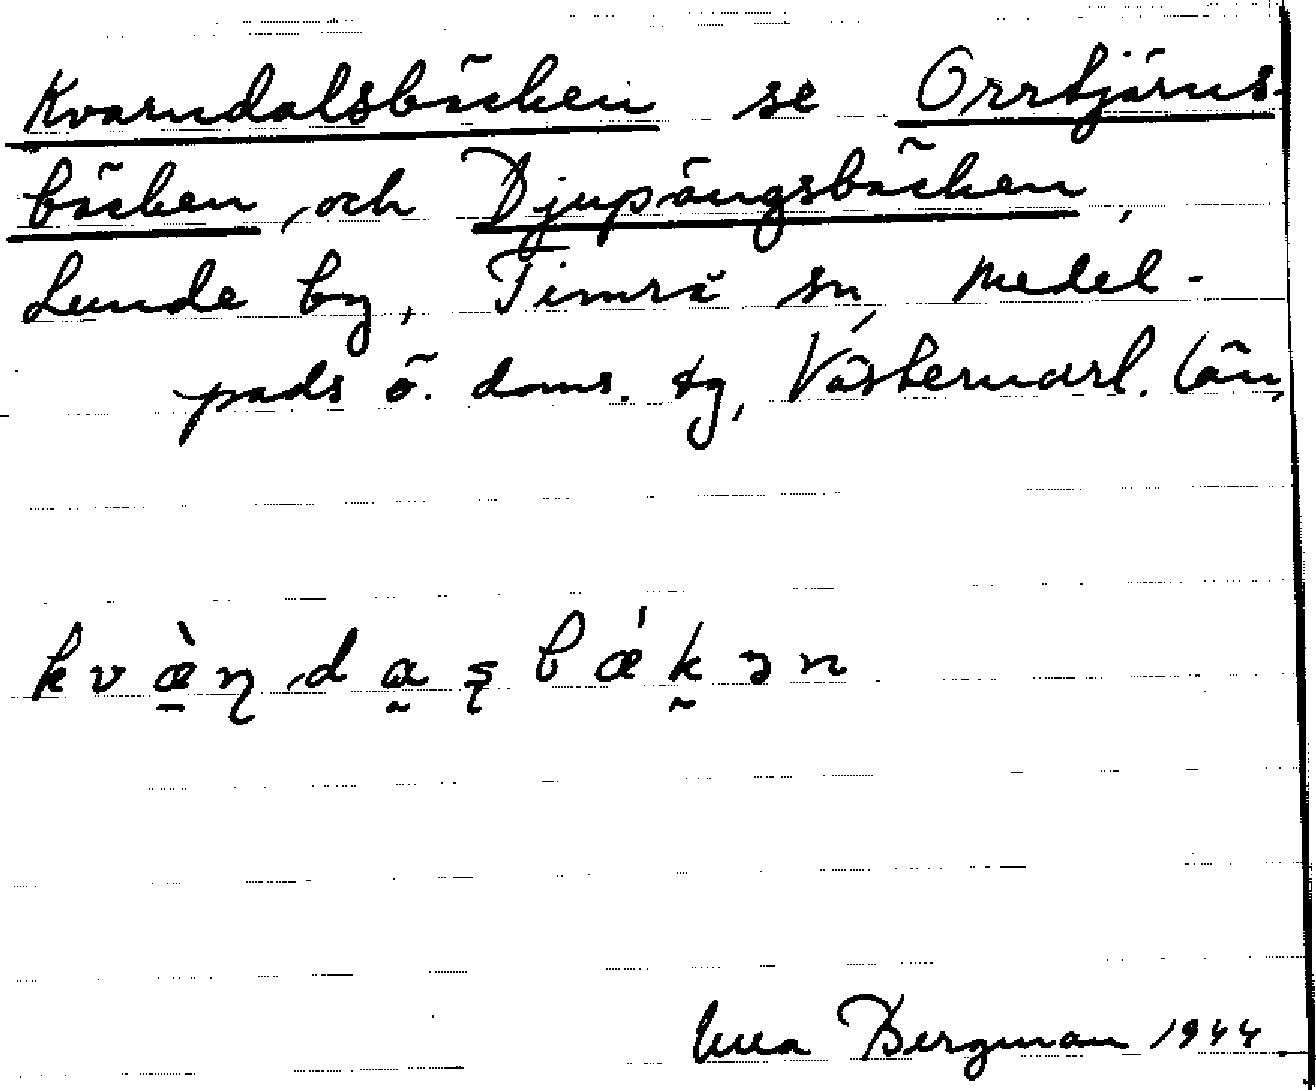 Kvarndalsbäcken se Orrtjärns-
bäcken och Djupängsbäcken,
Lunde by, Timrå sn, Medel-
pads ö. doms. tg, Västernorrl. län,
kvæ̠̀ɳda̰ʂbǽk̰ən
Bergman 1944